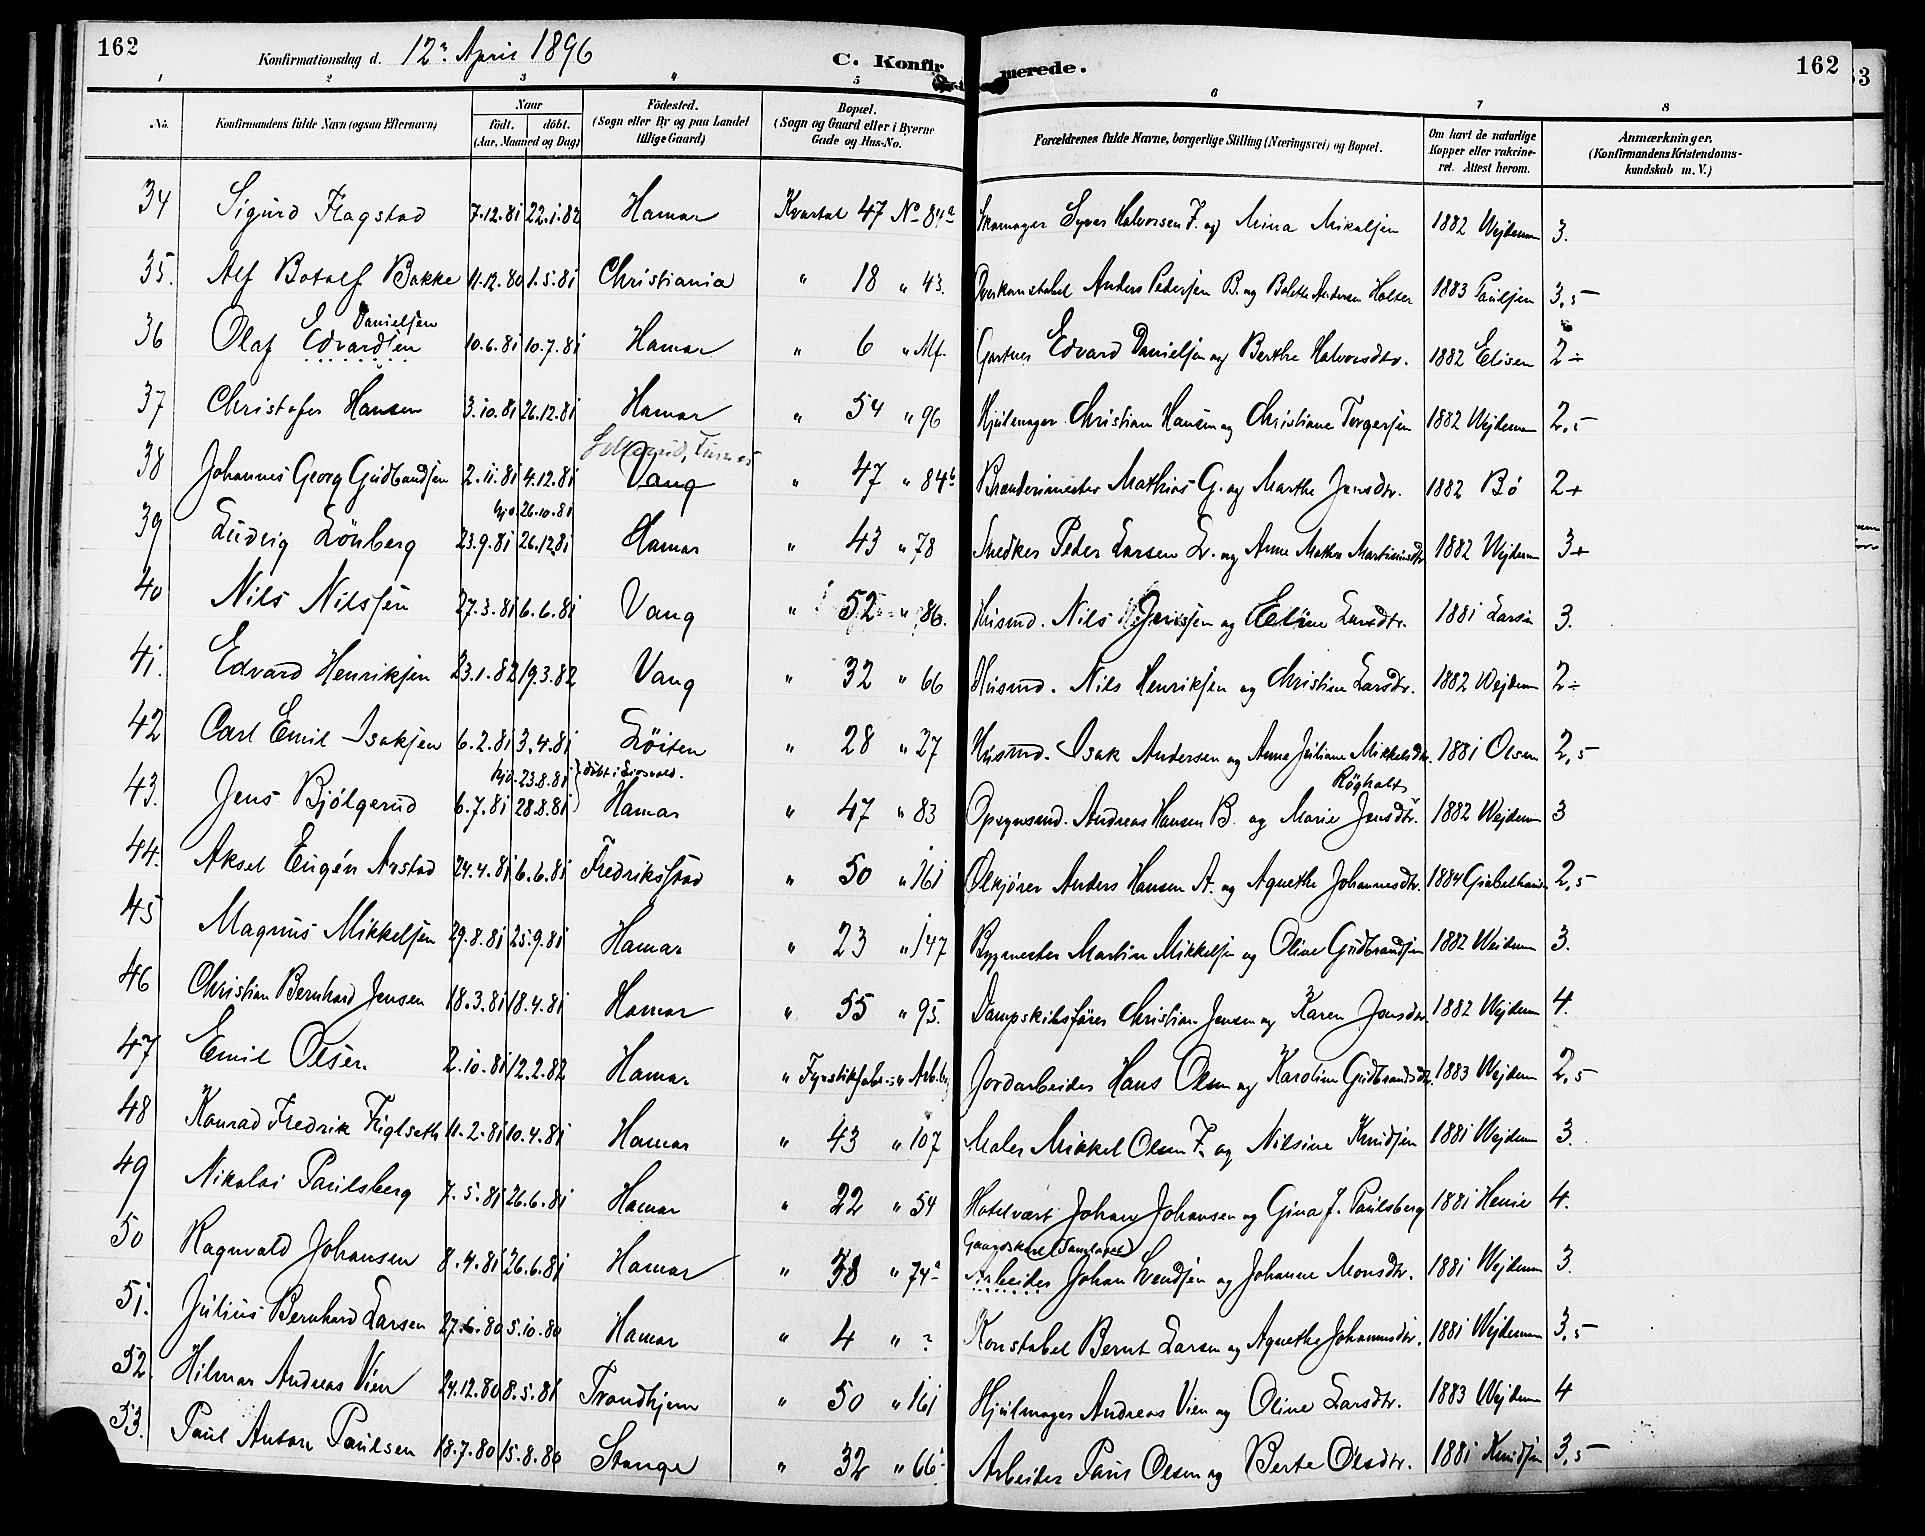 162
Konfirmationsdag d. 12r April 1896
C. Konfirmerede.
162
1 2 3 4 5 6 7 8
No.
Konfirmandens fulde Navn (ogsaa Efternavn)
Naar
født. døbt.
(Aar, Maaned og Dag)
Fødested.
(Sogn eller By og paa Landet
tillige Gaard)
Bopæl.
(Sogn og Gaard eller i Byerne
Gade og Hus-No.
Forældrenes fulde Navne, borgerlige Stilling (Næringsvei) og Bopæl.
Om havt de naturlige
Kopper eller vakcine-
ret. Attest herom.
Anmærkninger.
(Konfirmandens Kristendoms-
kundskab m. V.)
34 Sigurd Flagstad 7.12.81 22.1.82 Hamar Kvartal 47 No 84a Skomager Syver Halvorsen F. og Mina Mikalsen 1882 Wejdemann 3.
35. Alf Botolf Bakke 11.12.80 1.5.81 Christiania " 18 " 43. Overkonstabel Anders Pedersen B. og Bolette Andersen Holter 1883 Paulsen 3,5
Danielsen
36 Olaf Edvardsen 10.6.81 10.7.81 Hamar " 6 " Mf. Gartner Edvard Danielsen og Berthe Halvorsdtr. 1882 Elisen 2÷
37 Christofer Hansen 3.10.81 26.12.81 Hamar " 54 " 96 Hjulmager Christian Hansen og Christiane Torgersen 1882 Wejdemann 2,5
38 Johannes Georg Gudbrandsen 2.11.81 4.12.81 Vang " 47 " 84b Brænderimester Mathias G. og Marthe Jensdtr. 1882 Bö 2+
hjd. 26.10.81
39 Ludvig Lönberg 23.9.81 26.12.81 Hamar " 43 " 78 Snedker Peder Larsen L. og Anne Mathea Martiniusdtr 1882 Wejdemann 3+
40 Nils Nilssen 27.3.81 6.6.81 Vang " 52 " 86. Husmd. Nils Jenssen og Eline Larsdtr. 1881 Larsen 3.
41. Edvard Henriksen 23.1.82 19.3.82 Vang " 32 " 66 Husmd. Nils Henriksen og Christine Larsdtr. 1882 Wejdemann 2÷
42 Carl Emil Isaksen 6.2.81 3.4.81 Löiten " 28 " 27 Husmd. Isak Andersen og Anne Juliane Mikkelsdtr. 1881 Olsen 2,5
hjd. 23.8.81 } döbt i Eidsvold. Röghalt
43. Jens Bjölgerud 6.7.81 28.8.81 Hamar " 47 " 83 Opsynsmd. Andreas Hansen B. og Marie Jensdtr. 1882 Wejdemann 3
44. Aksel Eugén Aastad 24.4.81 6.6.81 Fredriksstad " 50 " 161 Ölkjörer Anders Hansen A. og Agnethe Johannesdtr. 1884 2,5
45 Magnus Mikkelsen 29.8.81 25.9.81 Hamar " 23 " 147 Bygmester Martin Mikkelsen og Oline Gudbrandsen 1882 Wejdemann 3.
46 Christian Bernhard Jensen 18.3.81 18.4.81 Hamar " 55 " 95. Dampskibsförer Christian Jensen og Karen Jonsdtr. 1882 Wejdemann 4.
47 Emil Olsen 2.10.81 12.2.82 Hamar " Fyrstikfabr. Jordarbeider Hans Olsen og Karoline Gudbrandsdtr. 1883 Wejdemann 2,5
48 Konrad Fredrik Fuglseth 11.2.81 10.4.81 Hamar " 43 " 107 Maler Mikkel Olsen F. og Nilsine Knudsen 1881 Wejdemann 3.
49 Nikolai Paulsberg 7.5.81 26.6.81 Hamar " 22 " 54 Hotelvært Johan Johansen og Gina J. Paulsberg 1881 Henie 4.
Gaardskarl
50 Ragnvald Johansen 8.4.81 26.6.81 Hamar " 38 " 74a Arbeider Johan Svendsen og Johanne Monsdtr. 1881 Wejdemann 3.
51. Julius Bernhard Larsen 27.6.80 5.10.80 Hamar " 4 " ? Konstabel Bernt Larsen og Agnethe Johannesdtr. 1881 Wejdemann 3,5
52. Hilmar Andreas Vien 24.12.80 8.5.81 Trondhjem " 50 " 161 Hjulmager Andreas Vien og Oline Larsdtr. 1883 Wejdemann 4
53. Paul Anton Paulsen 18.7.80 15.8.80 Stange " 32 " 66 Arbeider Paul Olsen og Berte Olsdtr. 1881 Knudsen 3,5